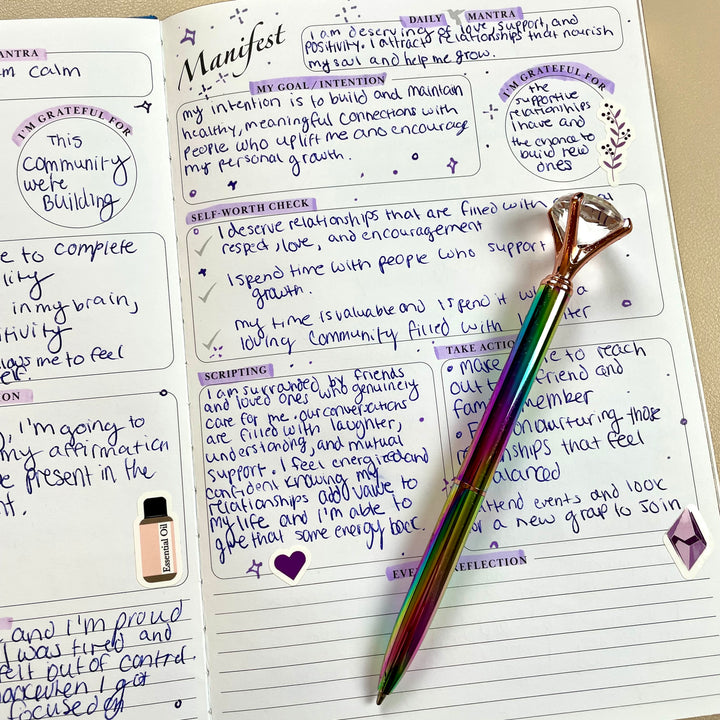 ANTRA
m calm
I'M GRATEFUL FOR
This
community
we're
Building
e to complete
lity
in my brain,
sitivity
lows me to feel
self.
ON
, I'm going to
my affirmation
e present in the
nt.
Essential Oil
and I'm proud
I was tired and
felt out of control.
when I got
focused on
Manifest
DAILY MANTRA
I am deserving of love, support, and
positivity. I attract relationships that nourish
my soul and help me grow.
MY GOAL / INTENTION
my intention is to build and maintain
healthy, meaningful connections with
people who uplift me and encourage
my personal growth.
I'M GRATEFUL FOR
the
supportive
relationships
I have and
the chance to
build new
ones
SELF-WORTH CHECK
I deserve relationships that are filled with al
respect, love, and encouragement
I spend time with people who support
growth.
my time is valuable and I spend it w a
loving community filled with l ter
SCRIPTING
I am surrounded by friends
and loved ones who genuinely
care for me. our conversations
are filled with laughter,
understanding, and mutual
support. I feel energized and
confident knowing my
relationships add value to
my life and I'm able to
give that same energy back.
TAKE ACTIO
• make e to reach
out t friend and
fam member
• F on nurturing those
relationships that feel
balanced
ttend events and look
or a new group to join
EVE REFLECTION